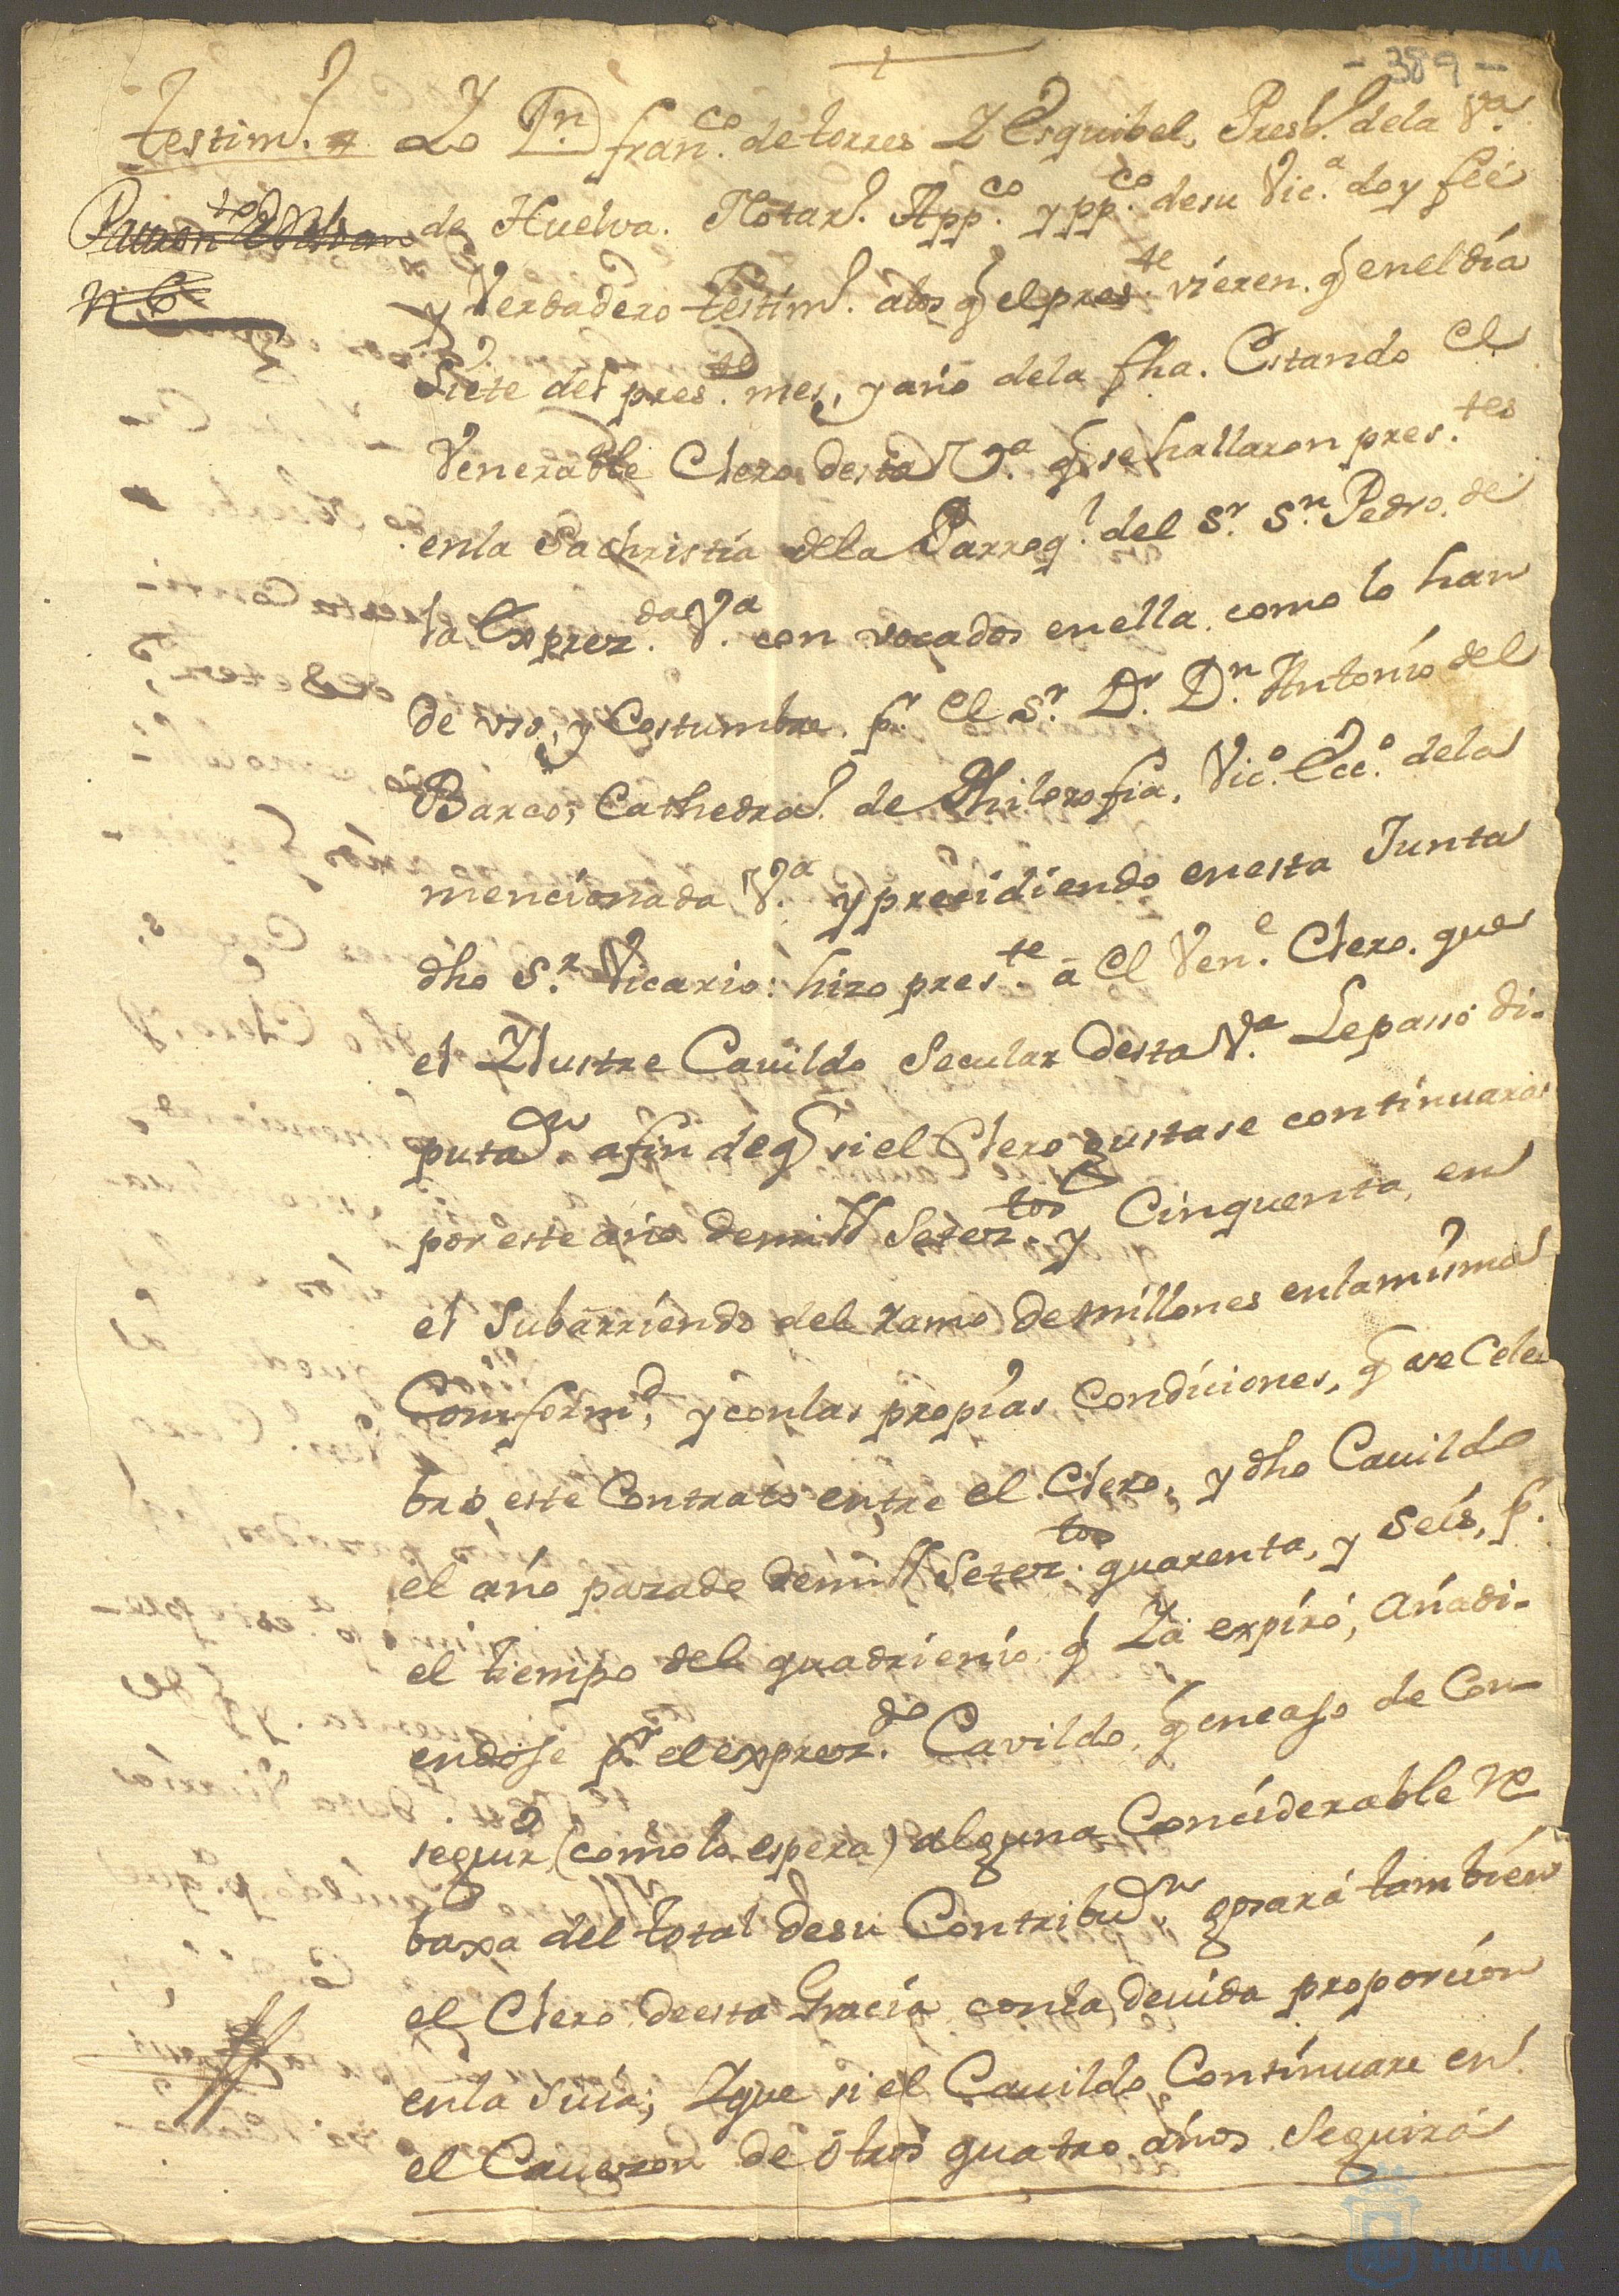 - 389 -
testim.º Yo Dn. franco. de torres Y Esquibel, Presb.º dela Va.
de Huelva. Notar.º Appco. y ppco. desu Vic.ª doy feé
y Verdadero testim.º alos q̃ el preste. vieren. q̃ enel día
Siete del preste. mes, y año dela fha. Estando el
Venerable Clero desta Va. q̃ se hallaron prestes.
enla Sachristía dela Parroql. del Sr. Sn. Pedro. de
la Exprezda. Va. con vocados enella. como lo han
de uso, y Costumbre. pr. el Sr. Dr. Dn. Antonío del
Barco, Cathedral. de Philozofia, Vico. Ecco. dela
mencíonada Va. y presidiendo enesta Junta
dho Sr. Vicario: hizo preste. â el Vene. Clero. que
el Ylustre Cauildo Secular desta Va. Le passó di-
putaon. afin de q̃ si el Clero gustase contínuar
por este año de mill Seteztos. y Cinquenta, en
el Subarríendo del Ramo de míllones enla mísma
Comformd., y conlas propías Condiciones, q̃ se Cele
bró, este Contrato entre el Clero, y dho Cauildo
el año pazado de mill Seteztos. quarenta, y Seís, pr.
el tiempo del quadrienío q̃ Ya expíró, Añadi-
endose pr. el exprezdo. Cavildo, q̃ en caso de Con-
seguir (como lo espera) alguna Conciderable Re
baxa del total desu Contribuon. gozará también
el Clero de esta Gracía conla devída proporcíon
enla Suia; Y que si el Cauildo Contínuare en
el Cauezon de ôtros quatro años Seguirá
HUELVA